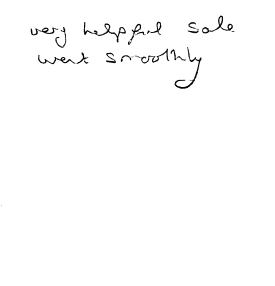 very helpful sale
went smoothly